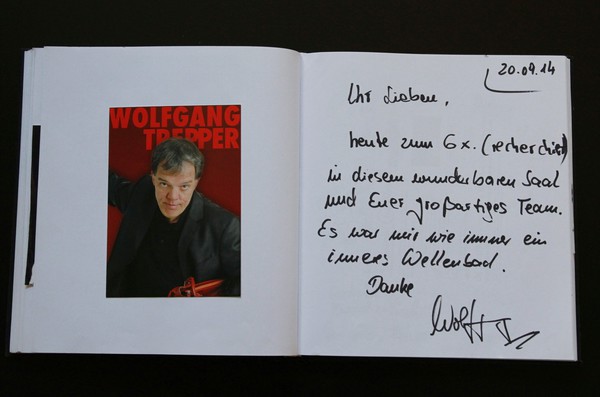 WOLFGANG
TREPPER
20.09.14
Ihr Lieben,
heute zum 6x. (recherchiert)
in diesem wunderbaren Saal
und Euer großartiges Team.
Es war mir wie immer ein
inneres Wellenbad.
Danke